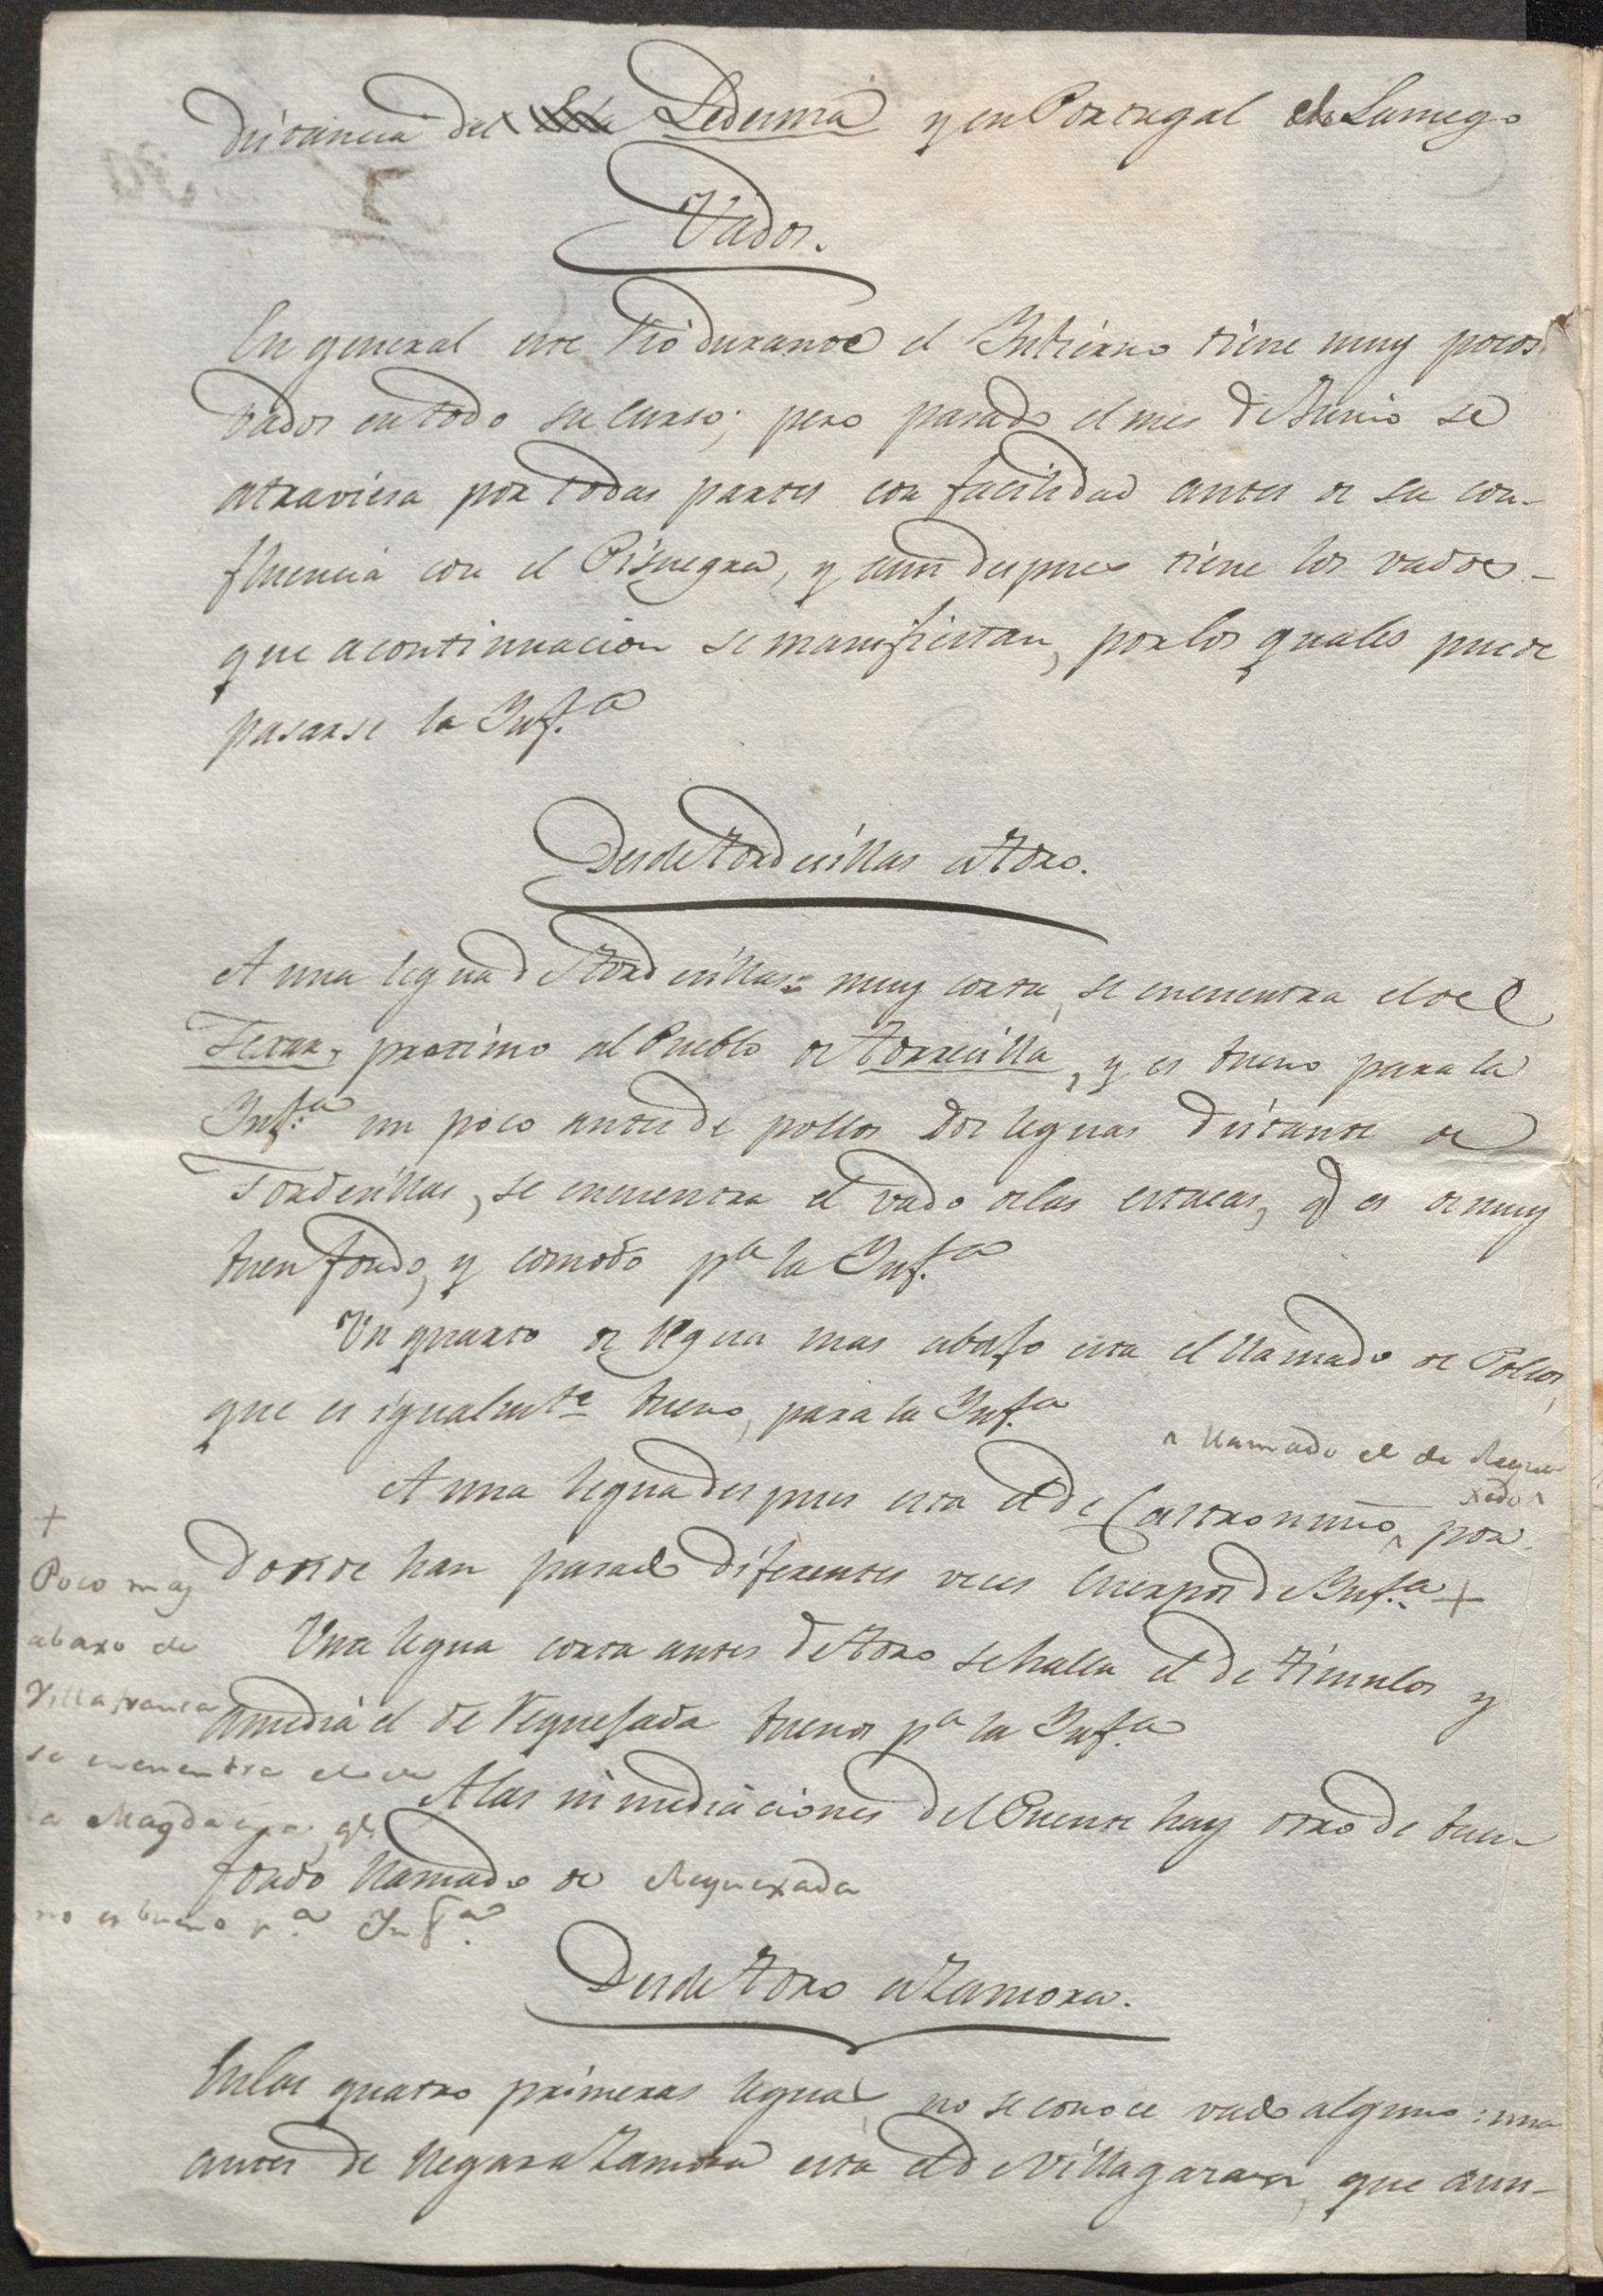 distancia del Ledesma y en Portugal el Lamego
Vados.
En general este Rio durante el Imbierno tiene muy pocos
vados en todo su curso; pero pasado el mes de Junio se
atraviesa por todas partes con facilidad antes de su con-
fluencia con el Pisuerga, y aun despues tiene los vados-
que a continuacion se manifiestan, por los quales puede
pasarse la Inf.ª
Desde Tordesillas a Toro.
A una legua de Tordesillas muy corta, se encuentra el de
proximo al Pueblo de Torrecilla, y es bueno para la
Inf.ª un poco antes de pollos dos leguas distante de
Tordesillas, se encuentra el vado de las estacas, q es de muy
buen fondo, y comodo pª la Inf.ª
Un quarto de legua mas abajo esta el llamado de Pollos,
que es igualmte bueno, para la Inf.ª
llamado el de Reque
xado
A una legua despues esta el de Castronuño, por
donde han pasado diferentes veces Cuerpos de Inf.ª +
Una legua corta antes de Toro se halla el de timulos y
a media el de Requejada buenos pª la Inf.ª
A las inmediaciones del Puente hay otro de buen
fondo llamado de Requexada
+
Poco mas
abaxo de
Villafranca
se encuentra el de
la Magdalena, qe
no es bueno p.ª Inf.ª
Desde Toro a Zamora.
En las quatro primeras leguas no se conoce vado alguno: una
antes de llegar a Zamora esta el de Villagarcia, que aun-